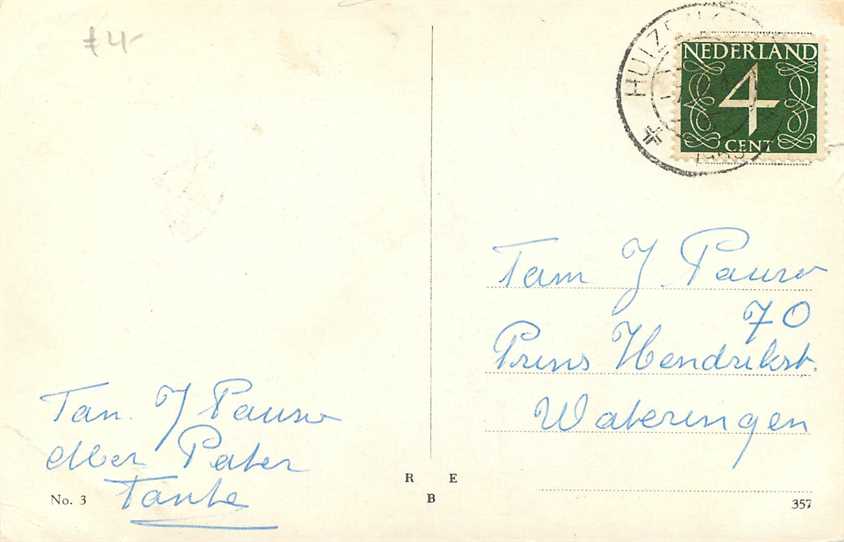 £ 4-
HUIZEN
NEDERLAND
4
CENT
Fam J. Pauw
70
Prins Hendrikst.
Wateringen
Fan. J Pauw
Pater
Tante
R E
B
No. 3
357